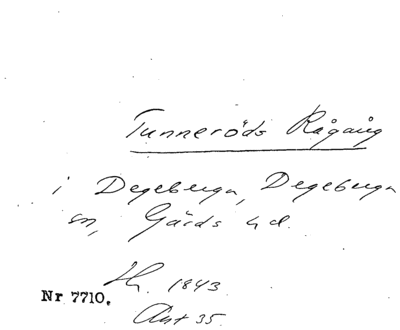 Tunneröds Rågång
i Degeberga, Degeberga
sn, Gärds hd.
Hg. 1843
Nr 7710.
Avt 35